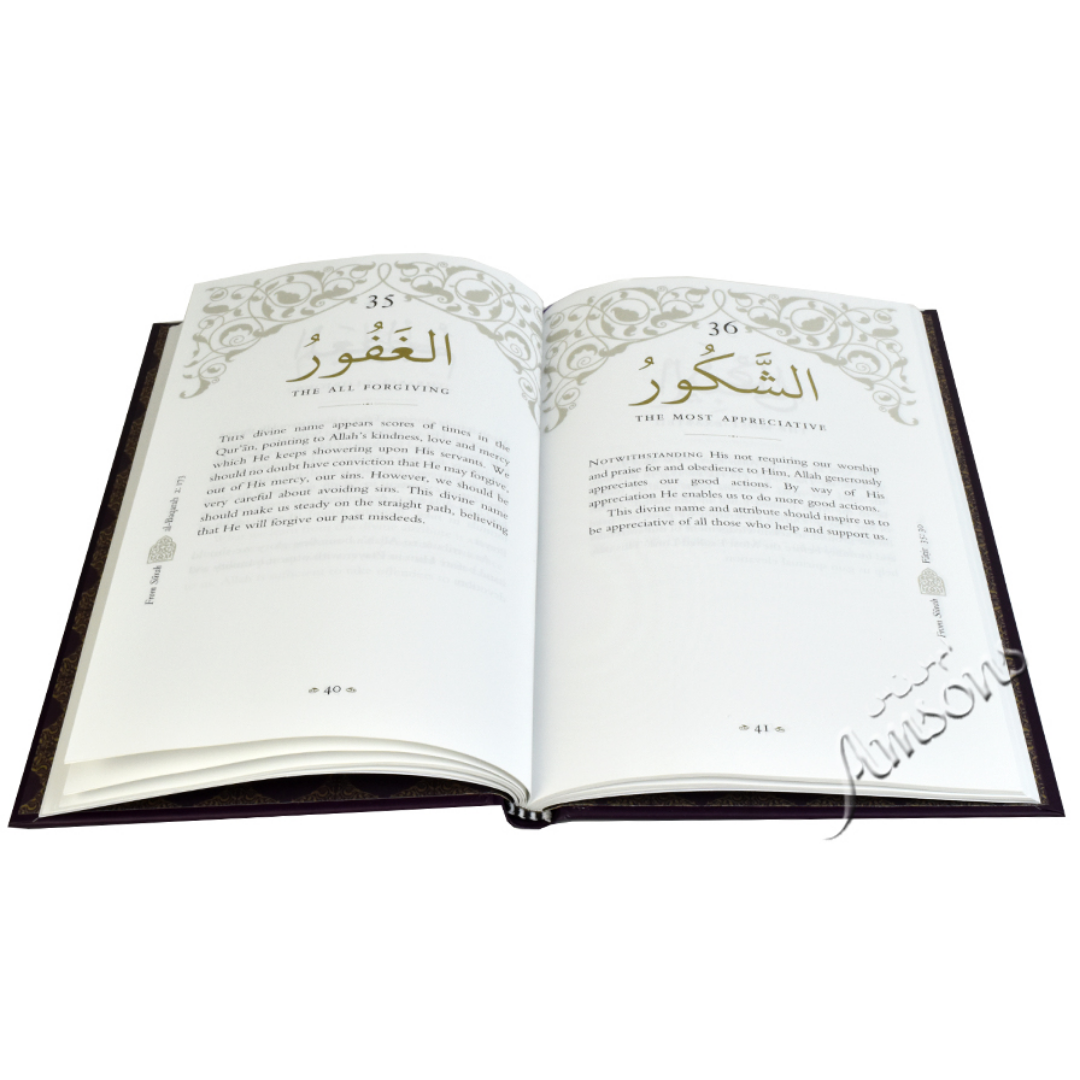 35
الغَفُورُ
THE ALL FORGIVING
THIS divine name appears scores of times in the
Qur'ān, pointing to Allah's kindness, love and mercy
which He keeps showering upon His servants. We
should no doubt have conviction that He may forgive,
out of His mercy, our sins. However, we should be
very careful about avoiding sins. This divine name
should make us steady on the straight path, believing
that He will forgive our past misdeeds.
From Sūrah al-Baqarah 2: 173
40
36
الشَّكُورُ
THE MOST APPRECIATIVE
NOTWITHSTANDING His not requiring our worship
and praise for and obedience to Him, Allah generously
appreciates our good actions. By way of His
appreciation He enables us to do more good actions.
This divine name and attribute should inspire us to
be appreciative of all those who help and support us.
From Sūrah Fāṭir 35: 30
41
Aimsons